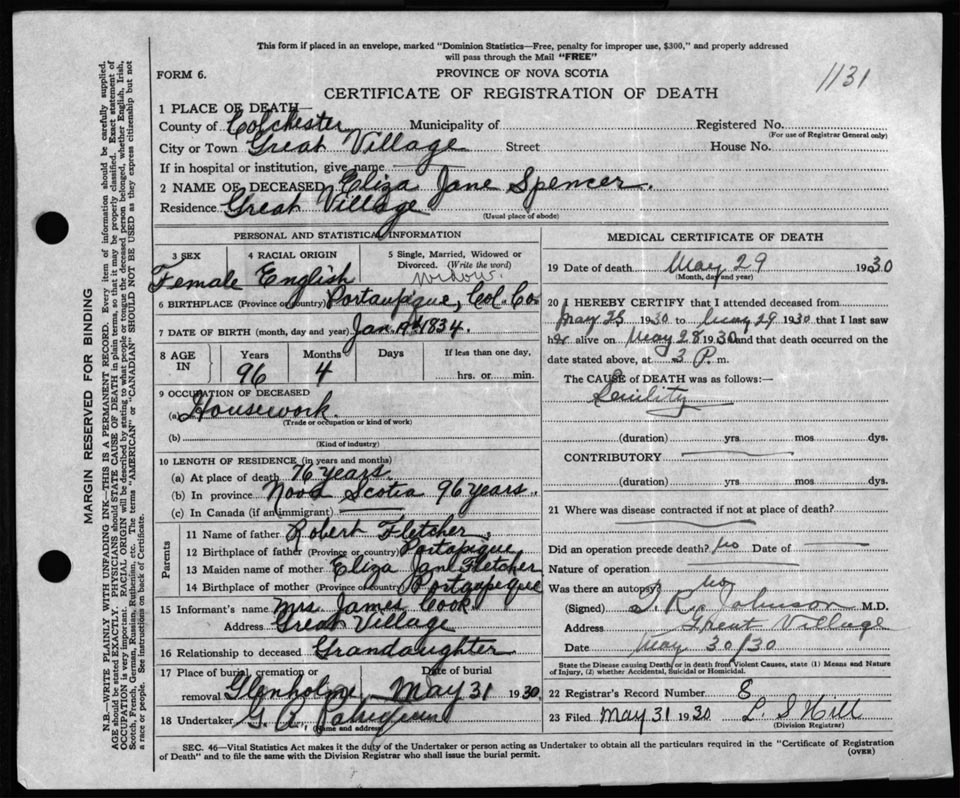 This form if placed in an envelope, marked "Dominion Statistics—Free, penalty for improper use, $300," and properly addressed
will pass through the Mail "FREE"
FORM 6.
PROVINCE OF NOVA SCOTIA
1131
CERTIFICATE OF REGISTRATION OF DEATH
1 PLACE OF DEATH—
County of Colchester Municipality of Registered No.
(For use of Registrar General only)
City or Town Great Village Street House No.
If in hospital or institution, give name
2 NAME OF DECEASED Eliza Jane Spencer.
Residence Great Village
(Usual place of abode)
PERSONAL AND STATISTICAL INFORMATION
3 SEX
Female
4 RACIAL ORIGIN
English
5 Single, Married, Widowed or
Divorced. (Write the word)
widow.
6 BIRTHPLACE (Province or country) Portaupique, Col. Co.
7 DATE OF BIRTH (month, day and year) Jan. 19th 1834.
8 AGE IN
Years Months Days If less than one day,
96 4 hrs. or min.
9 OCCUPATION OF DECEASED
(a) Housework.
(Trade or occupation or kind of work)
(b)
(Kind of industry)
10 LENGTH OF RESIDENCE (in years and months)
(a) At place of death 76 years.
(b) In province Nova Scotia 96 years.
(c) In Canada (if an immigrant)
Parents
11 Name of father Robert Fletcher.
12 Birthplace of father (Province or country) Portapique
13 Maiden name of mother Eliza Jane Fletcher
14 Birthplace of mother (Province or country) Portaupique
15 Informant's name Mrs James Cook.
Address Great Village
16 Relationship to deceased Grandaughter
17 Place of burial, cremation or removal Date of burial
Glenholme May 31 1930
18 Undertaker G. A.
(Name and address)
MEDICAL CERTIFICATE OF DEATH
19 Date of death May 29 1930
(Month, day and year)
20 I HEREBY CERTIFY that I attended deceased from
May 25 1930 to May 29 1930 that I last saw
her alive on May 28 1930 and that death occurred on the
date stated above, at 3 P. m.
The CAUSE of DEATH was as follows:—
Senility
(duration) yrs. mos dys.
CONTRIBUTORY
(duration) yrs. mos dys.
21 Where was disease contracted if not at place of death?
Did an operation precede death? No Date of
Nature of operation
Was there an autopsy? No
(Signed) Johnson M.D.
Address Great Village
Date May 30/30
State the Disease causing Death, or in death from Violent Causes, state (1) Means and Nature
of Injury, (2) whether Accidental, Suicidal or Homicidal.
22 Registrar's Record Number 8
23 Filed May 31 1930 L. S Hill
(Division Registrar)
SEC. 46—Vital Statistics Act makes it the duty of the Undertaker or person acting as Undertaker to obtain all the particulars required in the "Certificate of Registration
of Death" and to file the same with the Division Registrar who shall issue the burial permit.
(OVER)
MARGIN RESERVED FOR BINDING
N.B.—WRITE PLAINLY WITH UNFADING INK—THIS IS A PERMANENT RECORD. Every item of information should be carefully supplied.
AGE should be stated EXACTLY. PHYSICIANS should STATE CAUSE OF DEATH in plain terms, so that it may be properly classified. Exact statement of
OCCUPATION is very important. RACIAL ORIGIN will be described by stating to what people or tongue the deceased person belonged, whether English, Irish,
Scotch, French, German, Russian, Ruthenian, etc. The terms "AMERICAN" or "CANADIAN" SHOULD NOT BE USED as they express citizenship but not
a race or people. See instructions on back of Certificate.